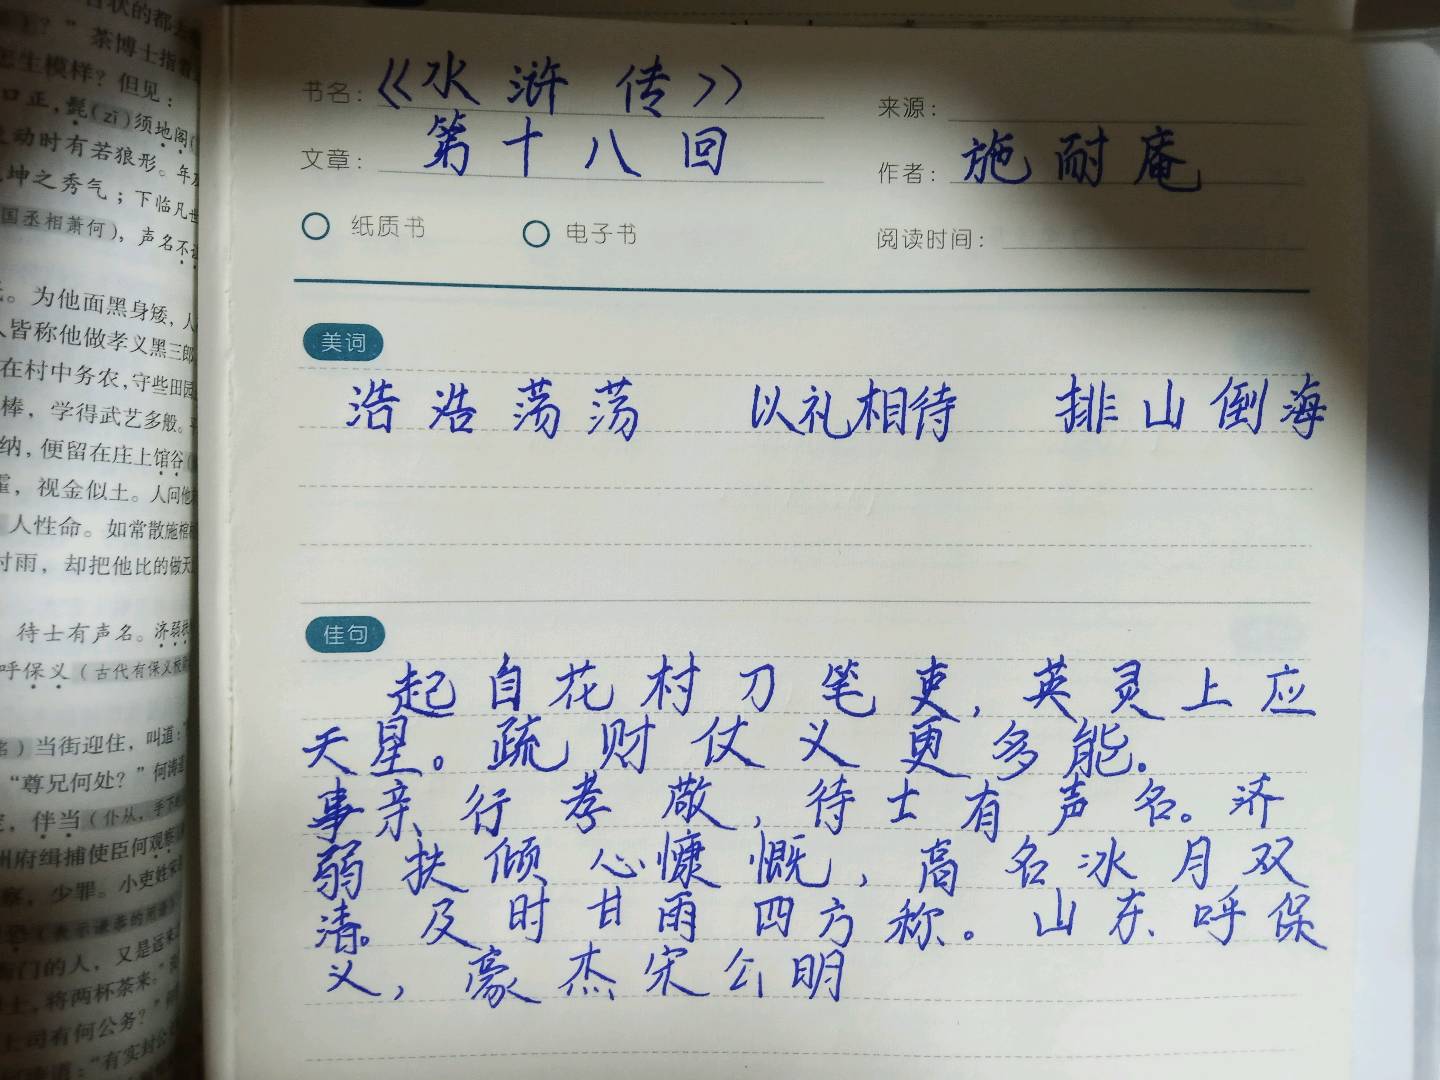 状的都去
？”茶博士指着
怎生模样？但见：
口正，髭（zī）须地阁
动时有若狼形。年
坤之秀气；下临凡世
国丞相萧何），声名不
。为他面黑身矮，人
人皆称他做孝义黑三郎
在村中务农，守些田园
棒，学得武艺多般。平
纳，便留在庄上馆谷（
霍，视金似土。人问他
人性命。如常散施棺
时雨，却把他比的做天
待士有声名。济弱扶
呼保义（古代有保义校
）当街迎住，叫道：“
“尊兄何处？”何涛道
，伴当（仆从，手下
州府缉捕使臣何观察
察，少罪。小吏姓宋
衙门的人，又是远来
士，将两杯茶来。”
上司有何公务？”
道：“有实封公
书名：《水浒传》
来源：
文章：第十八回
作者：施耐庵
纸质书 电子书 阅读时间：
美词
浩浩荡荡 以礼相待 排山倒海
佳句
起自花村刀笔吏，英灵上应
天星。疏财仗义更多能.
事亲行孝敬，待士有声名。济
弱扶倾心慷慨，高名冰月双
清。及时甘雨四方称。山东呼保
义，豪杰宋公明